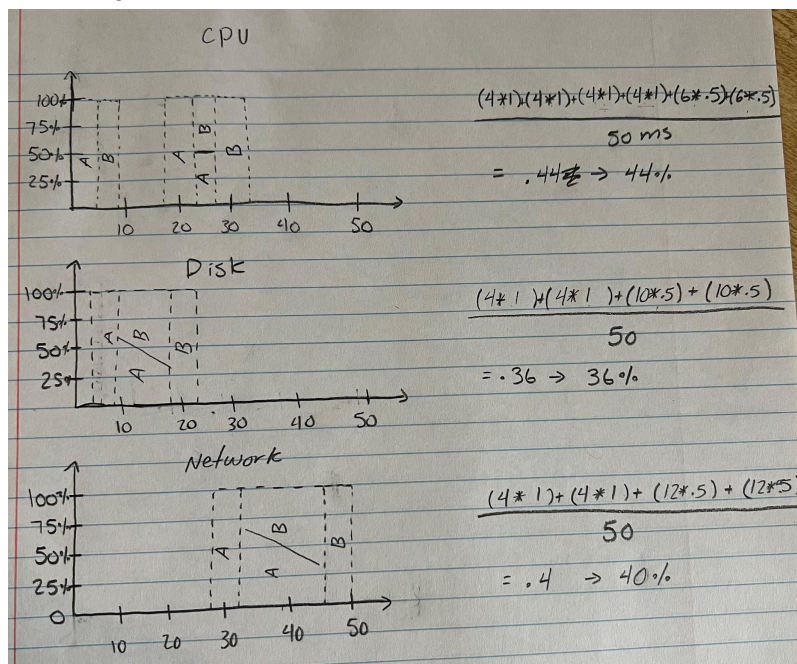 CPU
100%
75%
50%
25%
A B A A B B
10 20 30 40 50
(4*1)+(4*1)+(4*1)+(4*1)+(6*.5)+(6*.5)
50 ms
= .44 → 44%
Disk
100%
75%
50%
25%
A B A B
10 20 30 40 50
(4*1)+(4*1)+(10*.5)+(10*.5)
50
= .36 → 36%
Network
100%
75%
50%
25%
0
A B A B
10 20 30 40 50
(4*1)+(4*1)+(12*.5)+(12*.5)
50
= .4 → 40%